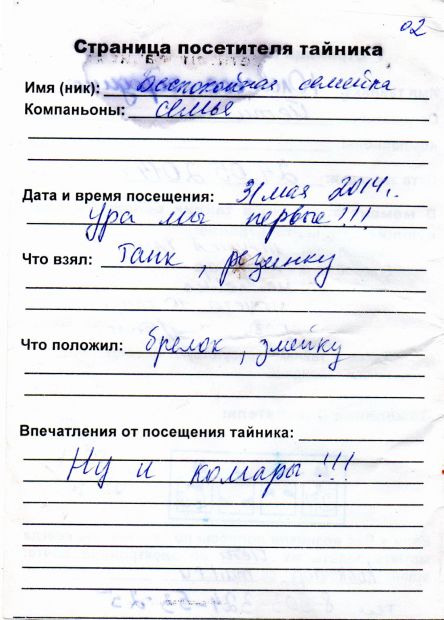 02
Страница посетителя тайника
Имя (ник): Беспокойная семейка
Компаньоны: семья
Дата и время посещения: 31 мая 2014г.
Ура мы первые!!!
Что взял: Танк, резинку
Что положил: брелок, змейку
Впечатления от посещения тайника:
Ну и комары!!!